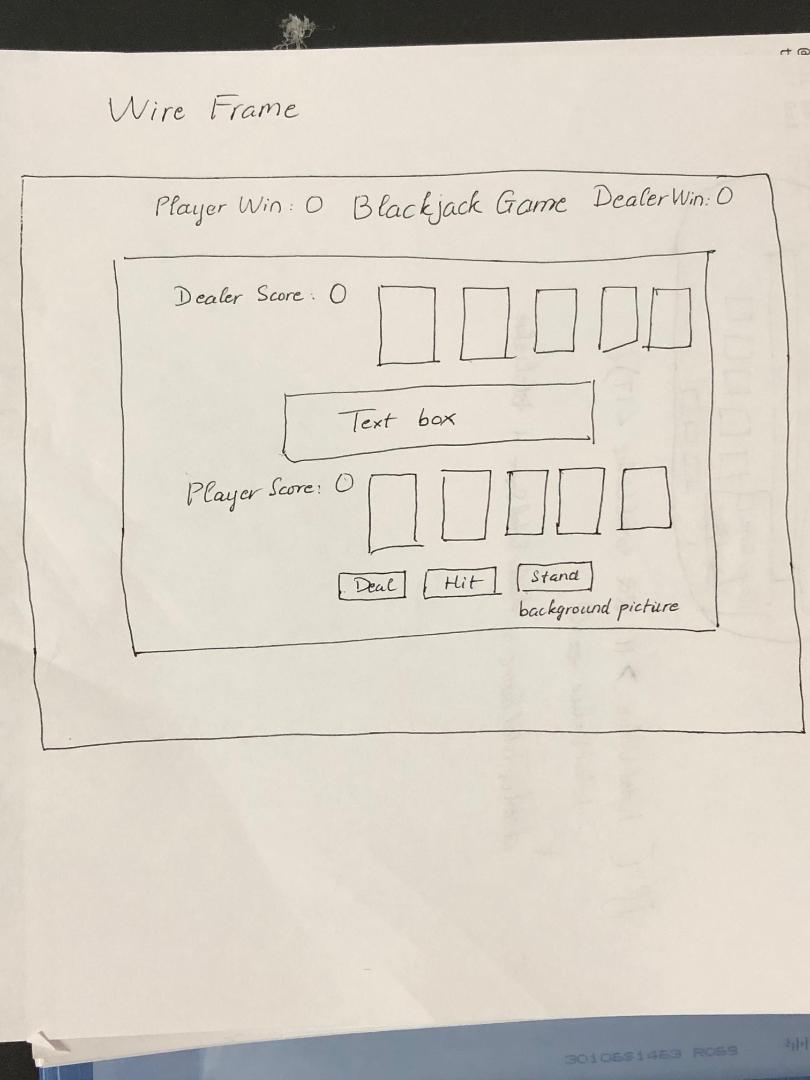 Wire Frame
Player Win: 0 Blackjack Game Dealer Win: 0
Dealer Score: 0
Text box
Player Score: 0
Deal Hit Stand
background picture
3010681463 R069